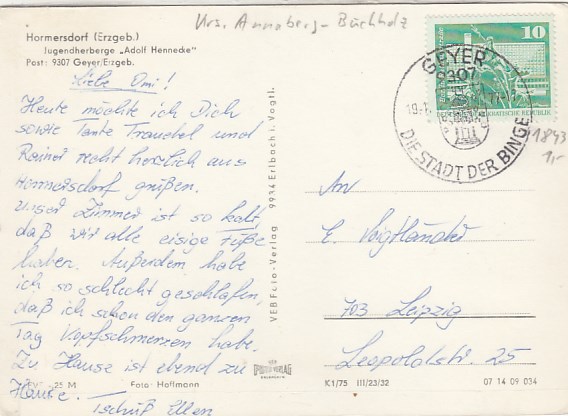 Krs. Annaberg-Buchholz
Hormersdorf (Erzgeb.)
Jugendherberge „Adolf Hennecke"
Post: 9307 Geyer/Erzgeb.
Liebe Omi!
Heute möchte ich Dich
sowie Tante Traudel und
Rainer recht herzlich aus
Hermersdorf grüßen.
Unser Zimmer ist so kalt,
daß wir alle eisige Füße
haben. Außerdem habe
ich so schlecht geschlafen,
daß ich schon den ganzen
Tag Kopfschmerzen habe.
Zu Hause ist eben zu
Hause.
Tschüß Ellen
25 M
Foto: Hoffmann
VEB Folio-Verlag 9934 Erlbach i. Vogtl.
10
GEYER
9307
DIE STADT DER BINGE
1843
1,-
An
E. Voigtländer
703 Leipzig
Leopoldstr. 25
K1/75 III/23/32
07 14 09 034